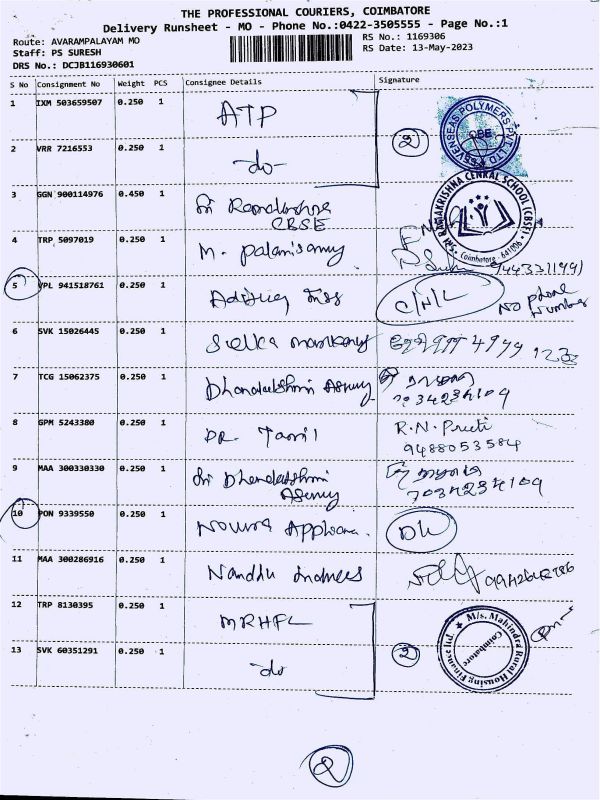 THE PROFESSIONAL COURIERS, COIMBATORE
Delivery Runsheet - MO - Phone No.:0422-3505555 - Page No.:1
Route: AVARAMPALAYAM MO
RS No.: 1169306
Staff: PS SURESH
RS Date: 13-May-2023
DRS No.: DCJB116930601
S No Consignment No Weight PCS Consignee Details Signature
1 IXM 503659507 0.250 1 ATP
2 VRR 7216553 0.250 1 -do-
2
SEVENSEAS POLYMERS PVT. LTD.
CBE
3 GGN 900114976 0.450 1 Sri Ramakrishna
CBSE
SRI RAMAKRISHNA CENRAL SCHOOL (CBSE)
Coimbatore - 641006
4 TRP 5097019 0.250 1 M. Palanisamy
5 VPL 941518761 0.250 1 C/N/L No Phone
Number
6 SVK 15026445 0.250 1
7 TCG 15062375 0.250 1 Dhandalakshmi Agency
7034234109
8 GPM 5243380 0.250 1 DR. Tamil R.N. Preeti
9488053584
9 MAA 300330330 0.250 1 Sri Dhandalakshmi
Agency
7034234109
10 PON 9339550 0.250 1 DL
11 MAA 300286916 0.250 1 Nandhu
12 TRP 8130395 0.250 1 MRHFL
13 SVK 60351291 0.250 1 -do
2
M/s. Mahindra Rural Housing Finance Ltd.
Coimbatore
2